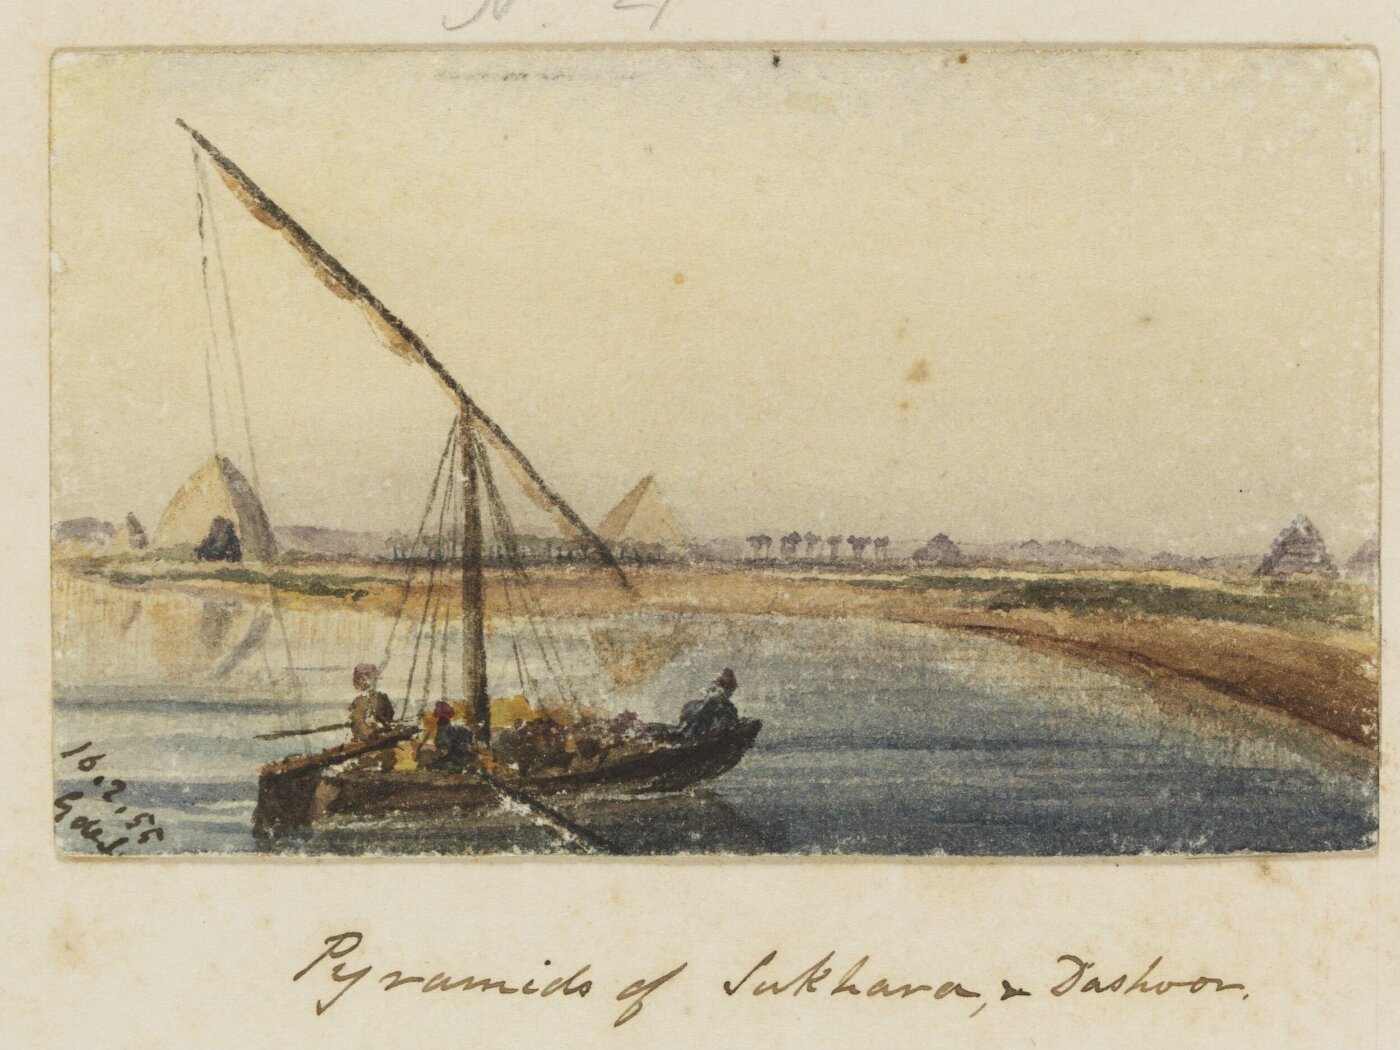 16.2.55
G del
Pyramids of Sukhara, & Dashoor.